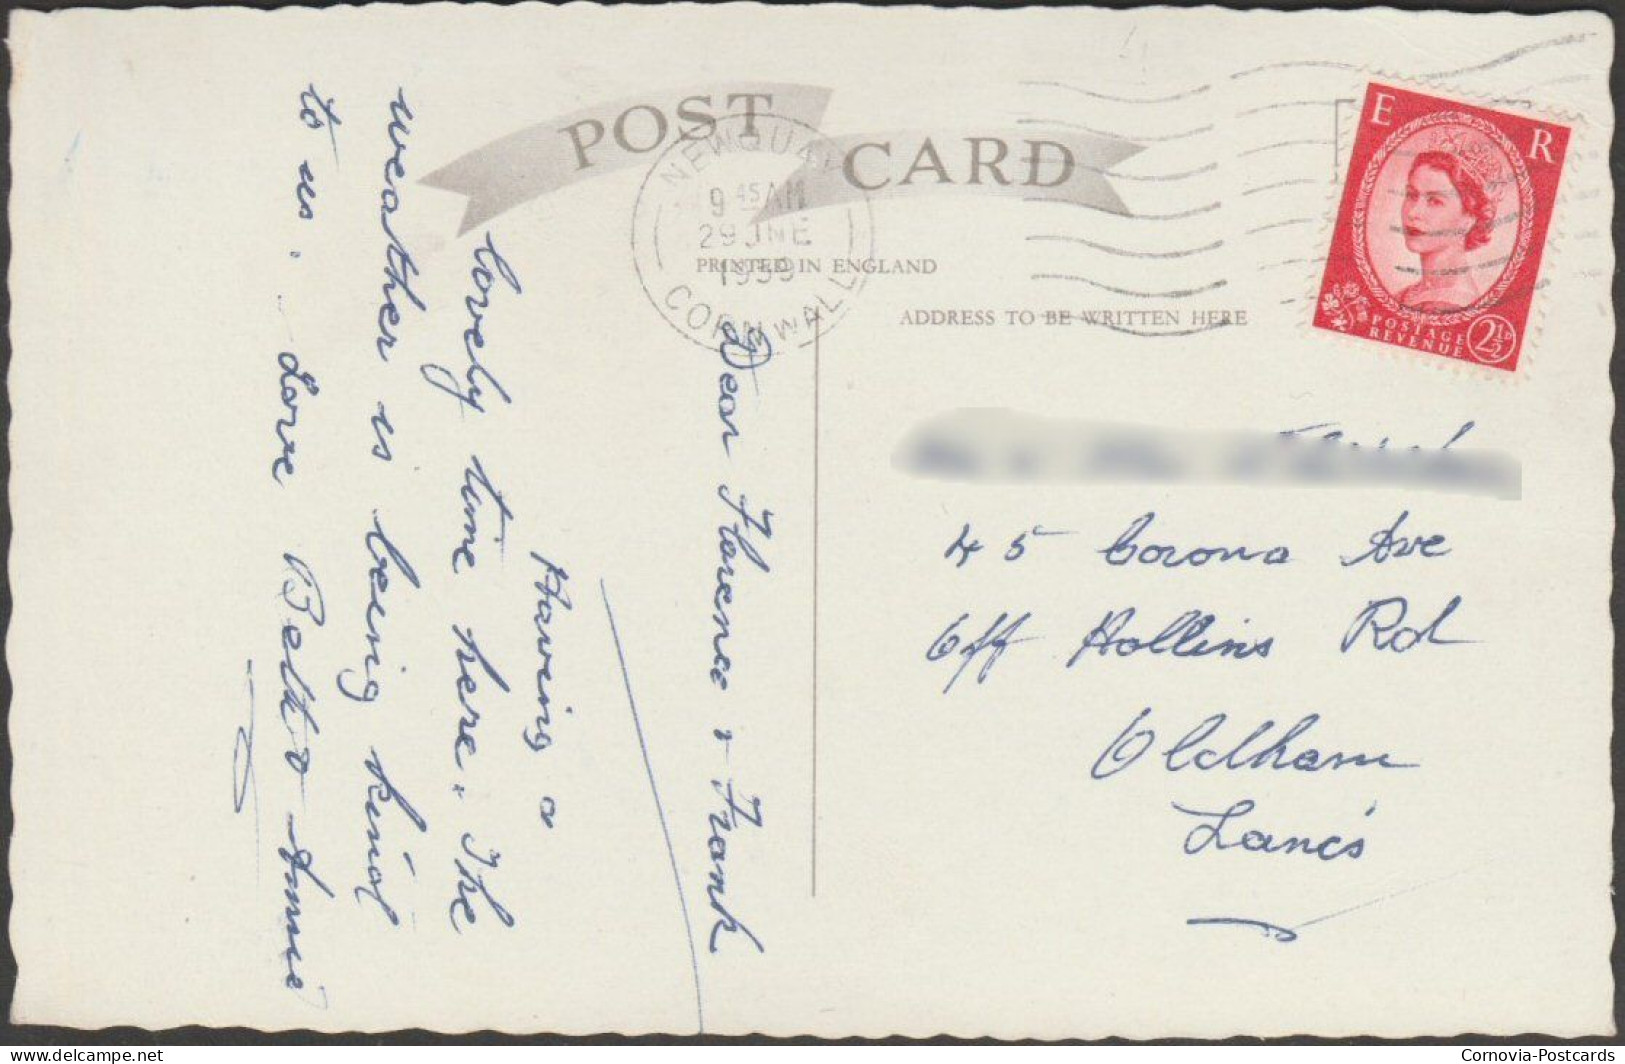 POST CARD
NEWQUAY
9 45 AM
29 JNE
1959
CORNWALL
PRINTED IN ENGLAND
ADDRESS TO BE WRITTEN HERE
E R
POSTAGE
REVENUE
2½D
Dear Florence & Frank
Having a
lovely time here. The
weather is being kind
to us. Love
45 Corona Ave
Off Hollins Rd
Oldham
Lancs
www.delcampe.net
Cornovia-Postcards